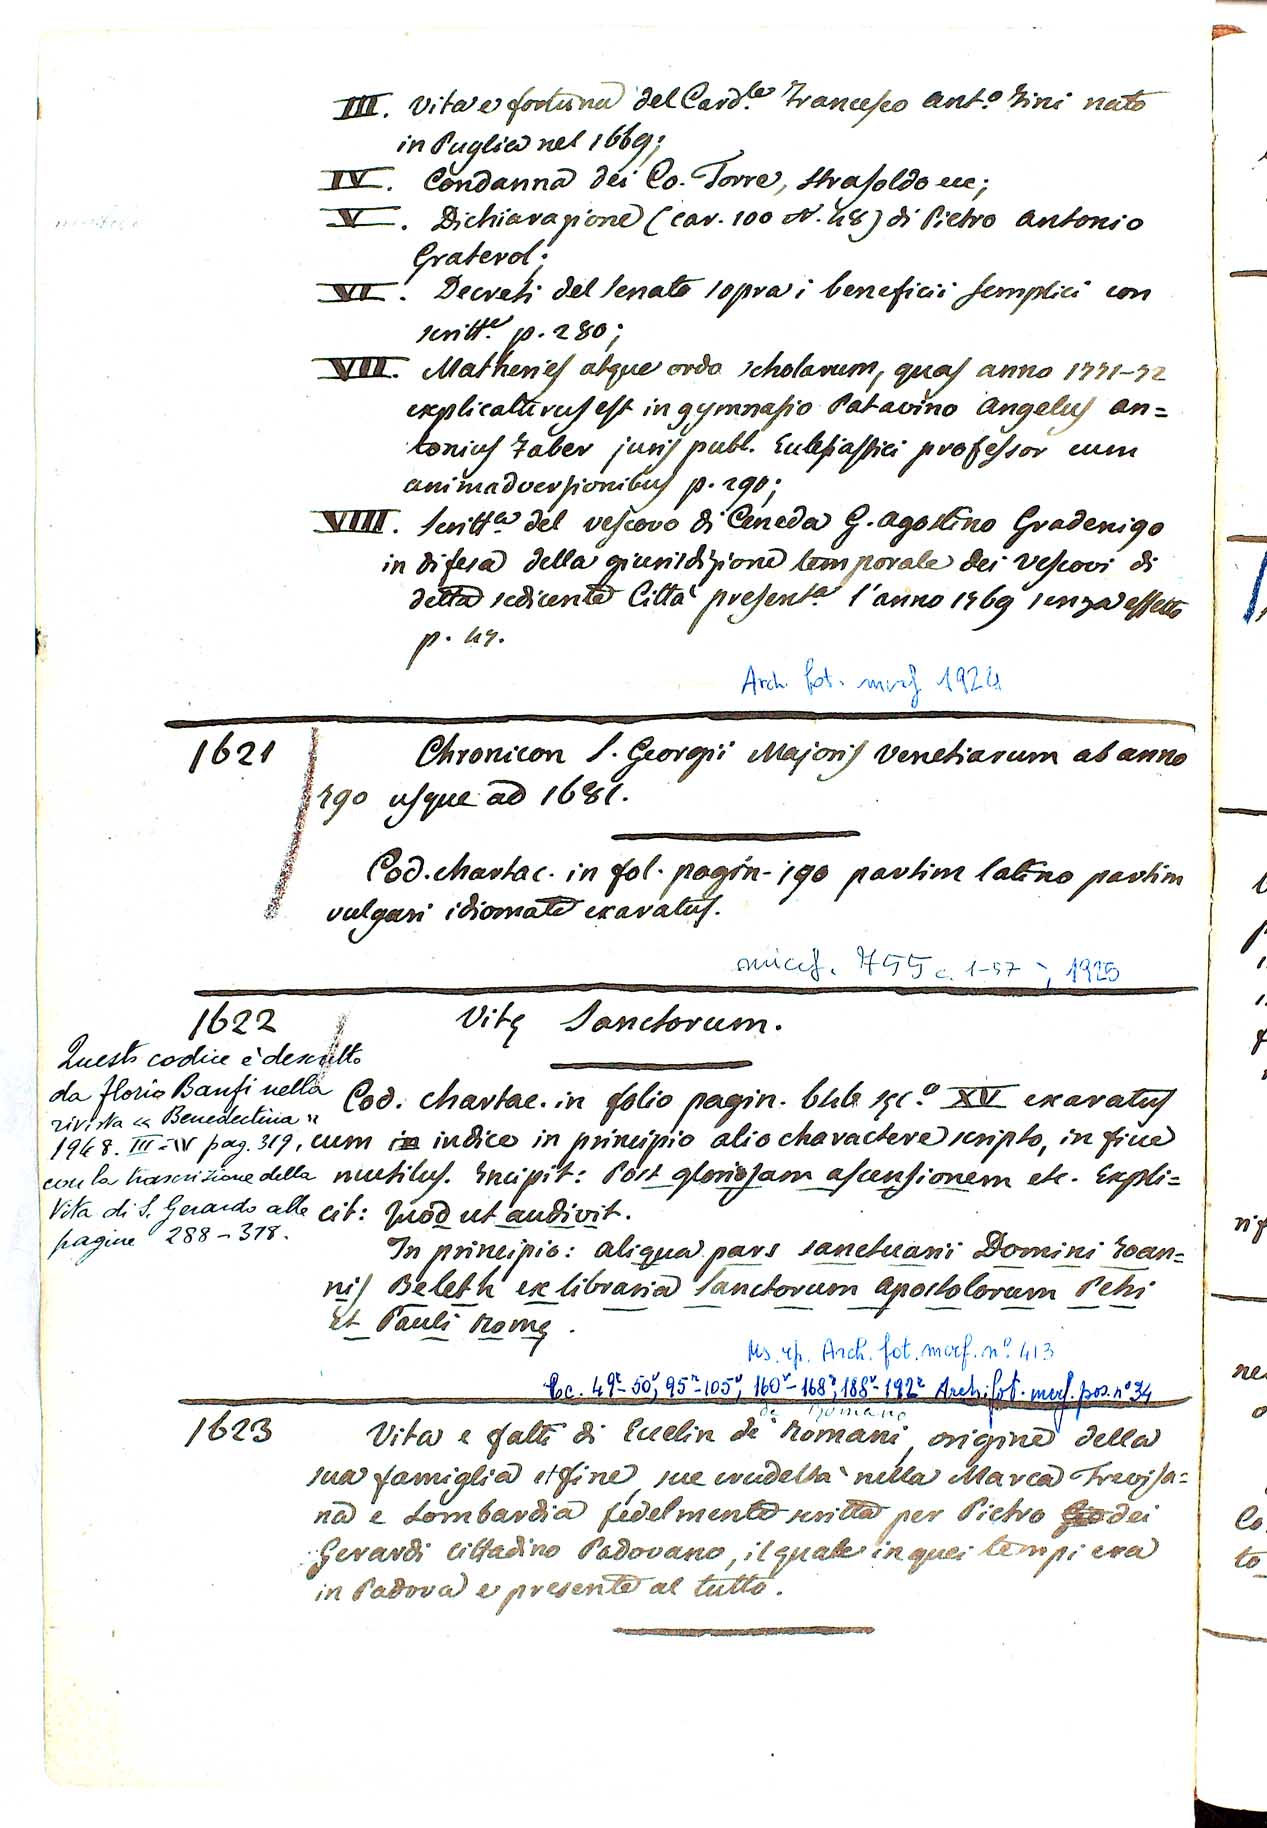 III. Vita e fortuna del Card.le Francesco Ant.o Fini nato
in Puglia nel 1669;
IV. Condanna dei Co. Torre, Strasoldo ecc;
V. Dichiarazione (car. 100 N. 48) di Pietro Antonio
Graterol;
VI. Decreti del Senato sopra i beneficii semplici con
scritt.e p. 280;
VII. Matheries atque ordo scholarum, quas anno 1771-72
explicaturus est in gymnasio Patavino Angelus An=
tonius Faber juris publ. Eclesiastici professor cum
animadversionibus p. 290;
VIII. Scritt.a del vescovo di Ceneda G. Agostino Gradenigo
in difesa della giurisdizione temporale dei Vescovi di
detta sedicente Città present.a l'anno 1769 senza effetto
p. 47.
Arch. fot. micrf 1924
1621 Chronicon S. Georgii Majoris Venetiarum ab anno
790 usque ad 1681.
Cod. chartac. in fol. pagin. 190 partim latino partim
vulgari idiomate exaratus.
micrf. 755 c. 1-57; 1925
1622 Vitę Sanctorum.
Questo codice è descritto
da Florio Banfi nella
rivista « Benedictina »
1948. III-IV pag. 319,
con la trascrizione della
Vita di S. Gerardo alle
pagine 288-318.
Cod. chartac. in folio pagin. 444 sęc.o XV exaratus
cum indice in principio alio charactere scripto, in fine
mutilus. Incipit: Post gloriosam ascensionem etc. Expli=
cit: Quod ut audivit.
In principio: aliqua pars sanctuarii Domini Ioan=
nis Beleth ex libraria Sanctorum Apostolorum Petri
Et Pauli Romę.
Ms. rip. Arch. fot. micrf. n.o 413
Cc. 49r-50v, 95r-105v, 160v-168r, 188v-192r Arch. fot. micrf. pos. n.o 34
da Romano
1623 Vita e fatti di Eccelin de Romani, origine della
sua famiglia et fine, sue crudeltà nella Marca Trevisa=
na e Lombardia fedelmente scritta per Pietro dei
Gerardi cittadino Padovano, il quale in quei tempi era
in Padova e presente al tutto.